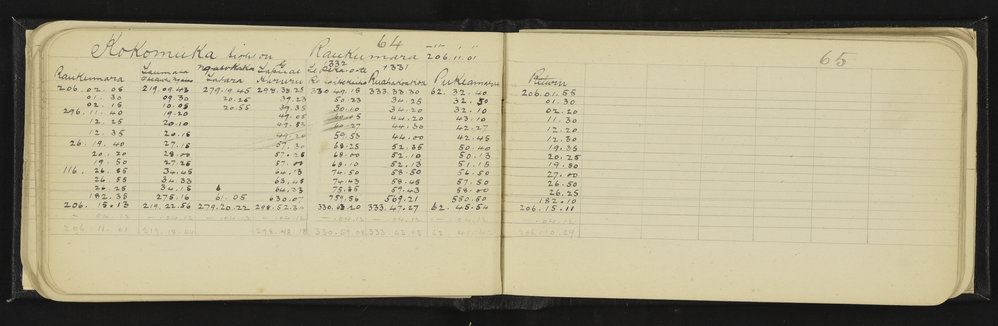 64
65
Kokomuka Raukumara 206.11.01
1332
1331
Raukumara Taumata Ngatokaka Tapuiae Te Pukeamaru Return
Tabara Haruru Ruahakakoa
206.02.05 219.09.43 279.19.45 298.38.25 330.49.15 333.33.30 62.32.40 206.01.55
01.30 09.30 20.25 39.23 50.23 34.25 32.50 01.30
02.15 10.05 20.55 39.35 50.10 34.20 32.10 02.20
296.11.40 19.20 49.05 44.20 43.10 11.30
12.25 20.10 44.30 42.27 12.20
12.35 20.15 49.20 59.53 44.00 42.45 12.30
26.19.40 27.15 57.30 68.25 52.35 50.40 19.35
20.20 28.00 57.25 68.00 52.10 50.13 20.25
19.50 27.25 57.00 68.10 52.13 51.15 19.50
116.26.55 34.45 64.13 74.50 58.50 56.50 27.00
26.55 34.33 63.45 74.43 58.45 57.50 26.50
26.25 34.15 64.23 75.35 57.43 58.00 26.25
182.35 275.16 61.05 630.07 759.56 569.21 550.50 182.10
206.15.13 219.22.56 279.20.22 298.52.30 330.63.20 333.47.27 62.45.54 206.15.11
- 04.12 - 04.12 - 04.12 - 04.12 - 04.12 - 04.12
206.11.01 219.18.44 298.48.18 330.59.08 333.43.15 62.41.42